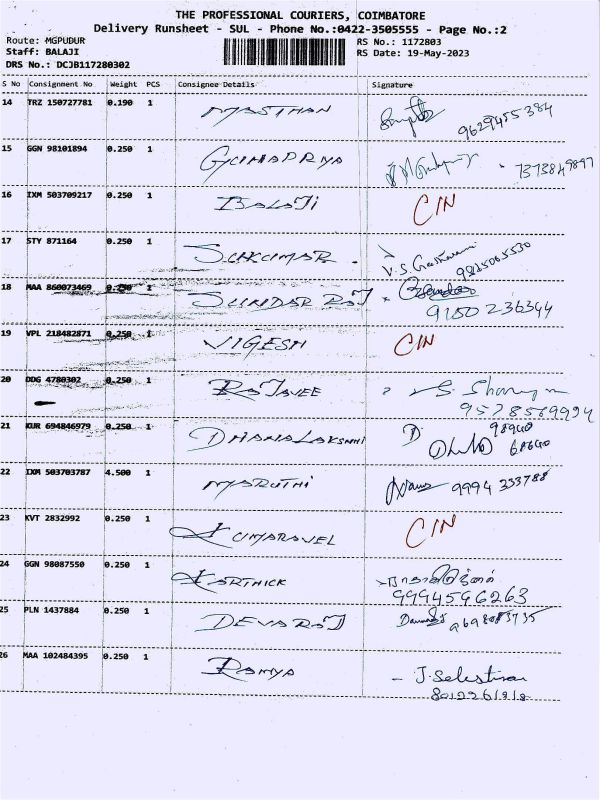 THE PROFESSIONAL COURIERS, COIMBATORE
Delivery Runsheet - SUL - Phone No.:0422-3505555 - Page No.:2
Route: MGPUDUR RS No.: 1172803
Staff: BALAJI RS Date: 19-May-2023
DRS No.: DCJB117280302
S No Consignment No Weight PCS Consignee Details Signature
14 TRZ 150727781 0.190 1 MASTHAN
9629455384
15 GGN 98101894 0.250 1 GUHAPRIYA
7373849897
16 IXM 503709217 0.250 1 BALAJI C/N
17 STY 871164 0.250 1 SUKUMAR
18 MAA 860073469 0.250 1 SUNDAR RAJ
9150236344
19 VPL 218482871 0.250 1 VIGESH C/N
20 DDG 4780302 0.250 1 RAJAVEE
9578569994
21 KUR 694846979 0.250 1 DHANALAKSHMI D. 98940
68640
22 IXM 503703787 4.500 1 MARUTHI 9994 333788
23 KVT 2832992 0.250 1 KUMARAVEL C/N
24 GGN 98087550 0.250 1 KARTHICK
9994596263
25 PLN 1437884 0.250 1 DEVARAJ
26 MAA 102484395 0.250 1 RAMYA - J. Selestina
8012261818